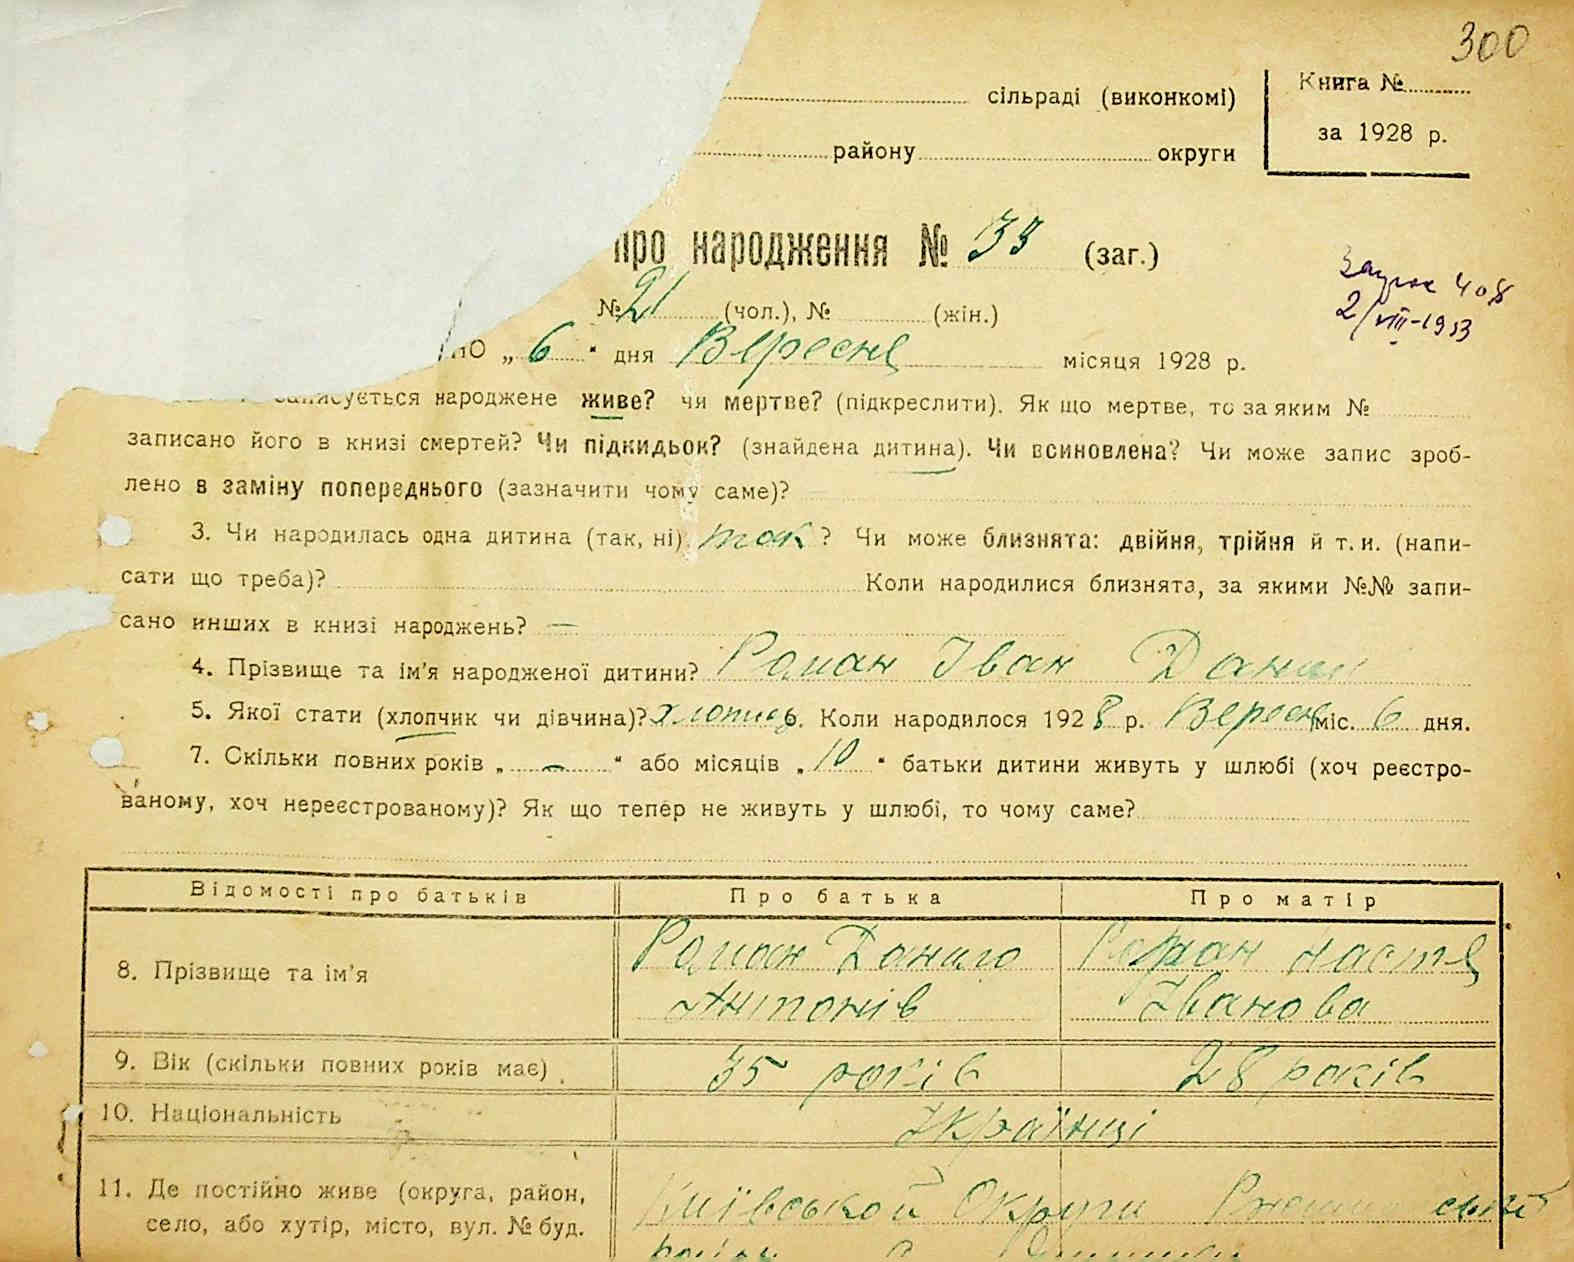 300
сільраді (виконкомі)
Книга №
за 1928 р.
району округи
про народження № 33 (заг.)
№ 21 (чол.), № (жін.)
408
2/VIII-1953
но „ 6 “ дня Вересня місяця 1928 р.
записується народжене живе? чи мертве? (підкреслити). Як що мертве, то за яким №
записано його в книзі смертей? Чи підкидьок? (знайдена дитина). Чи всиновлена? Чи може запис зроб-
лено в заміну попереднього (зазначити чому саме)?
3. Чи народилась одна дитина (так, ні) так ? Чи може близнята: двійня, трійня й т. и. (напи-
сати що треба)? Коли народилися близнята, за якими №№ запи-
сано инших в книзі народжень? —
4. Прізвище та ім'я народженої дитини? Роман Іван Данил
5. Якої стати (хлопчик чи дівчина)? хлопець 6. Коли народилося 1928 р. Вересня міс. 6 дня.
7. Скільки повних років „ – “ або місяців „ 10 “ батьки дитини живуть у шлюбі (хоч реєстро-
ваному, хоч нереєстрованому)? Як що тепер не живуть у шлюбі, то чому саме?
Відомості про батьків Про батька Про матір
8. Прізвище та ім'я
Роман Данило Роман Настя
Антонів Іванова
9. Вік (скільки повних років має) 35 років 28 років
10. Національність Українці
11. Де постійно живе (округа, район,
село, або хутір, місто, вул. № буд.
Київської Округи